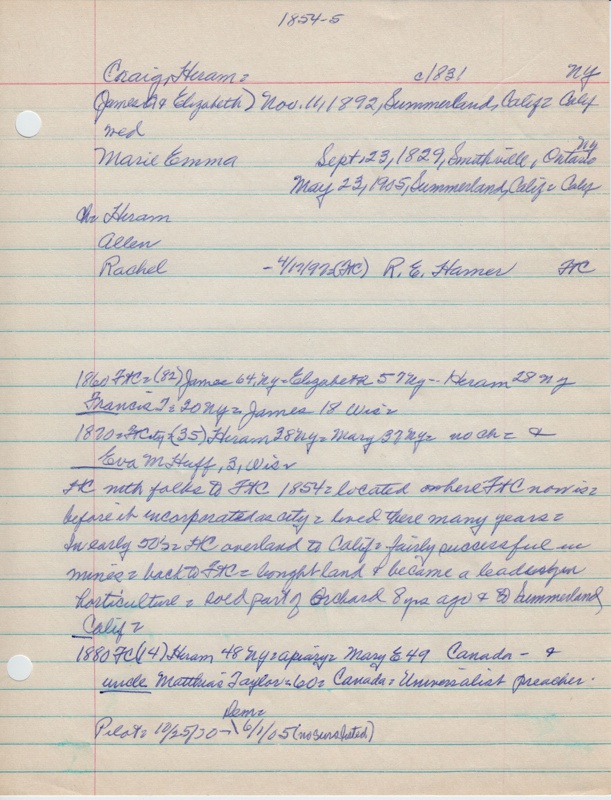 1854-5
Craig, Hiram = c1831 NY
(James & Elizabeth) Nov. 11, 1892, Summerland, Calif = Calif
wed NY
Marie Emma Sept. 23, 1829, Smithville, Ontario
May 23, 1905, Summerland, Calif = Calif
ch = Hiram
Allen
Rachel - 4/17/97 = (FtC) R. E. Hamer FtC
1860 FtC = (82) James 64, Ny = Elizabeth 57 Ny - Hiram 28 Ny
Francis T = 20 Ny = James 18 Wis =
1870 = FtCity = (35) Hiram 38 Ny = Mary 37 Ny = no ch = &
Eva M Huff, 3, Wis =
FtC with folks to FtC 1854 = located where FtC now is =
before it incorporated as city = lived there many years =
In early 50's = FtC overland to Calif = fairly successful in
mines = back to FtC = bought land & became a leader in
horticulture = sold part of Orchard 8 yrs ago & to Summerland,
Calif =
1880 FC (14) Hiram 48 Ny = apiary = Mary E 49 Canada - &
uncle Matthias Taylor = 60 = Canada = Universalist preacher.
Dem =
Pilot = 10/25/30 - 6/1/05 (no surv listed)